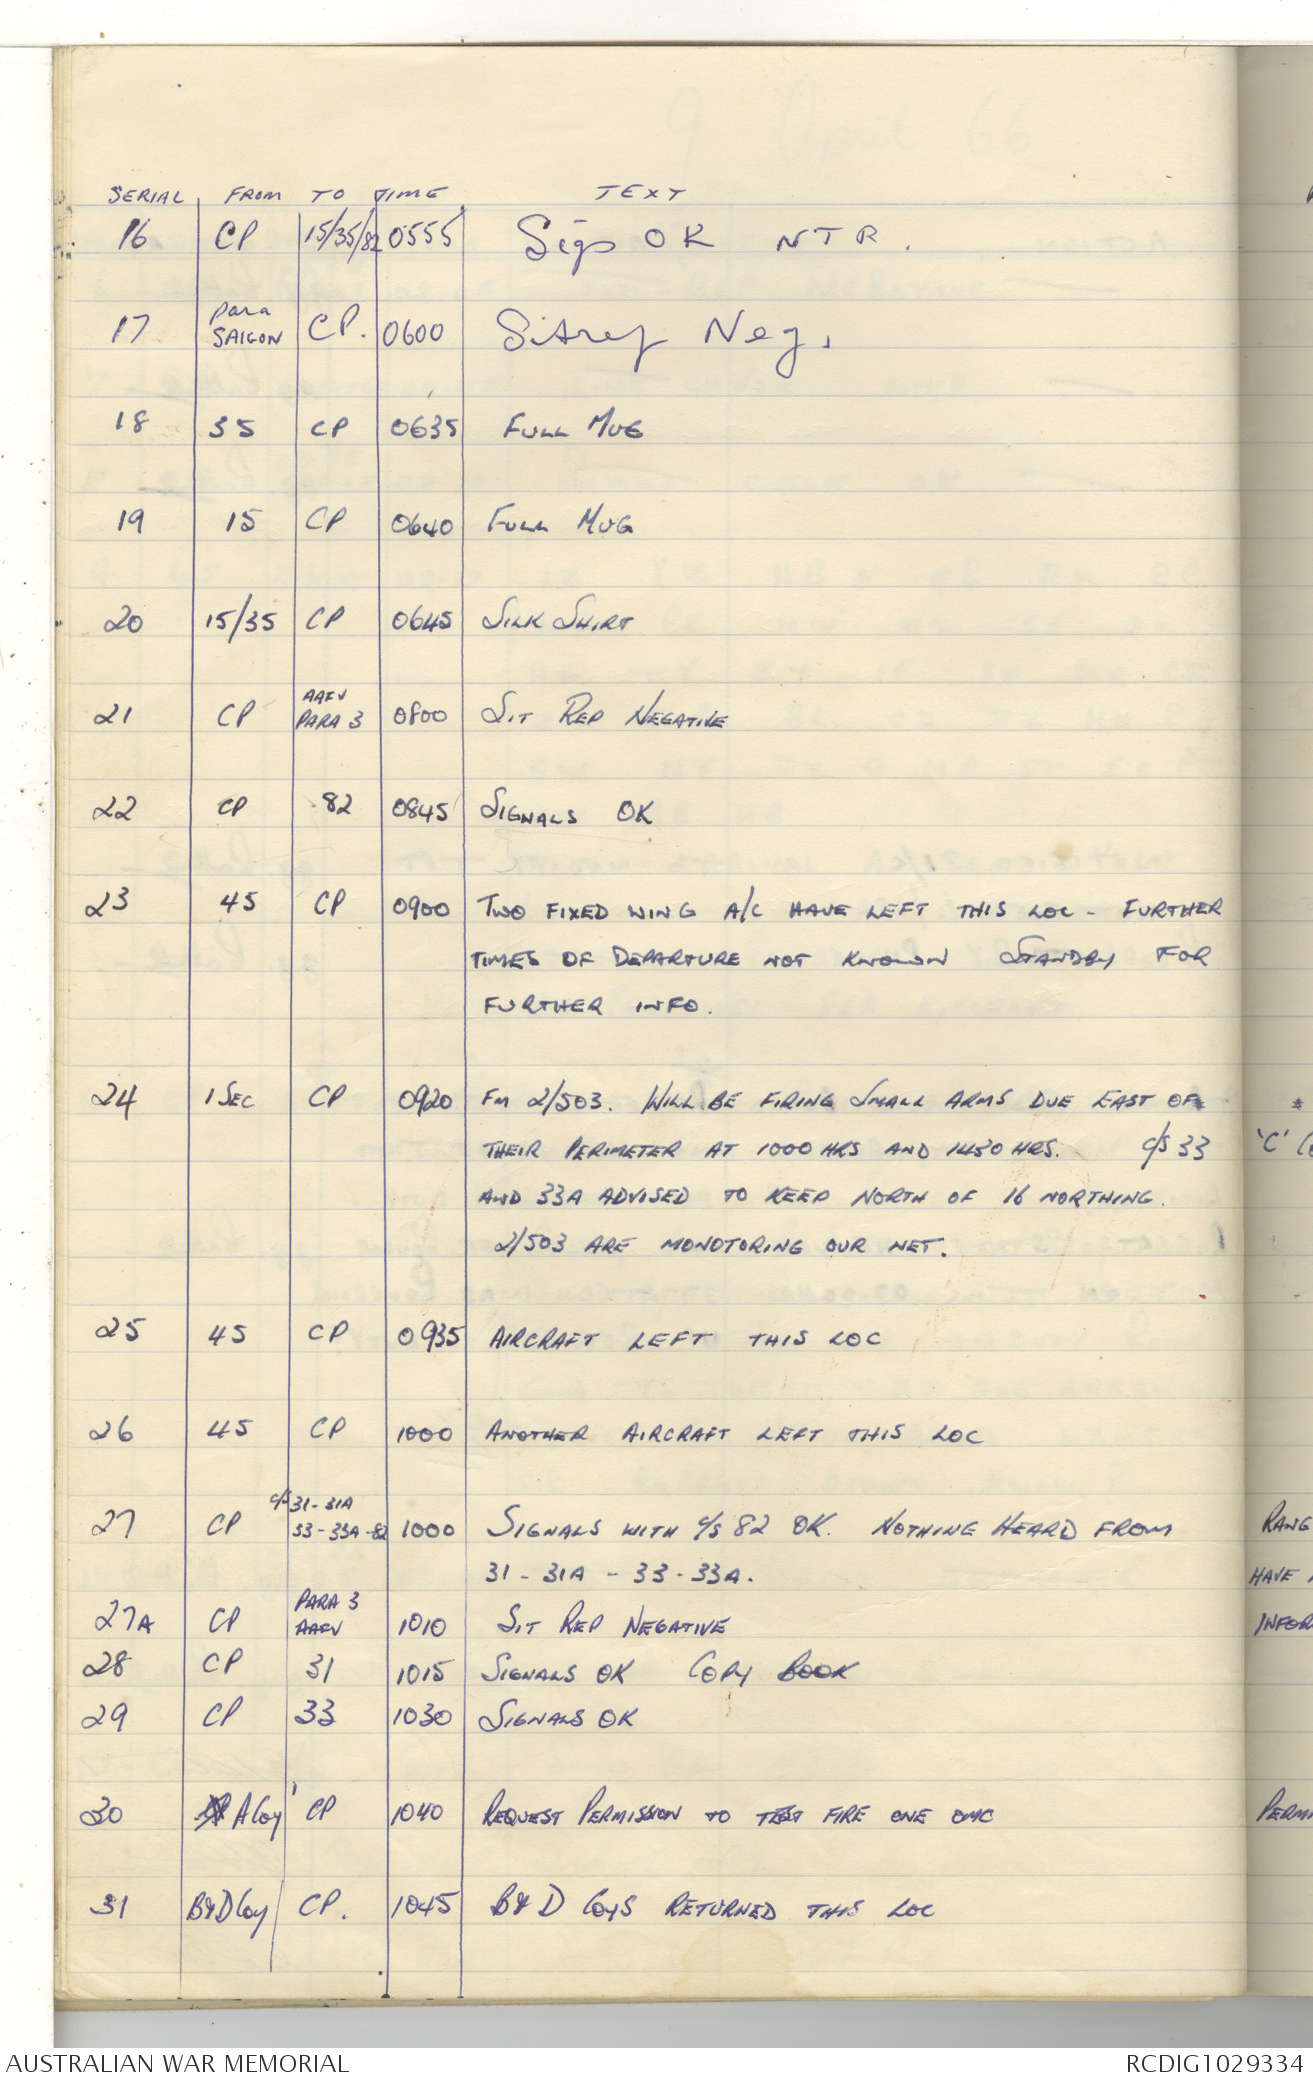 SERIAL FROM TO TIME TEXT
16 CP 15/35/82 0555 Sigs OK NTR.
17 Para SAIGON CP. 0600 Sitrep Neg.
18 35 CP 0635 FULL MUG
19 15 CP 0640 FULL MUG
20 15/35 CP 0645 SILK SHIRT
21 CP AAFV PARA 3 0800 SIT REP NEGATIVE
22 CP 82 0845 SIGNALS OK
23 45 CP 0900 TWO FIXED WING A/C HAVE LEFT THIS LOC - FURTHER
TIMES OF DEPARTURE NOT KNOWN STANDBY FOR
FURTHER INFO.
24 1 SEC CP 0920 FM 2/503. WILL BE FIRING SMALL ARMS DUE EAST OF
THEIR PERIMETER AT 1000 HRS AND 1430 HRS. C/S 33
AND 33A ADVISED TO KEEP NORTH OF 16 NORTHING.
2/503 ARE MONOTORING OUR NET.
25 45 CP 0935 AIRCRAFT LEFT THIS LOC
26 45 CP 1000 ANOTHER AIRCRAFT LEFT THIS LOC
27 CP c/s 31-31A 33-33A-82 1000 SIGNALS WITH c/s 82 OK. NOTHING HEARD FROM
31-31A-33-33A.
27A CP PARA 3 AAFV 1010 SIT REP NEGATIVE
28 CP 31 1015 SIGNALS OK COPY BOOK
29 CP 33 1030 SIGNALS OK
30 A Coy CP 1040 REQUEST PERMISSION TO TEST FIRE ONE OMC
31 B&D Coy CP. 1045 B & D Coys RETURNED THIS LOC
'C'
RANG
HAVE
INFOR
PERMI
AUSTRALIAN WAR MEMORIAL RCDIG1029334